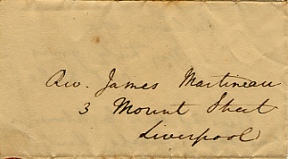 Rev. James Martineau
3 Mount Street
Liverpool